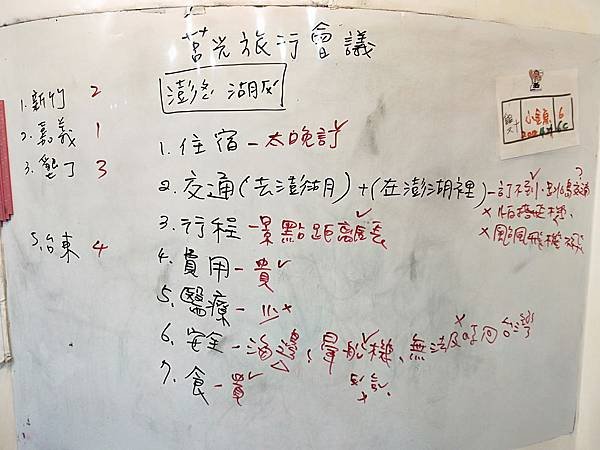 苦兆旅行會議
澎湖
1.新竹 2
2.嘉義 1
3.墾丁 3
5.台東 4
1.住宿-太晚訂
2.交通(去澎湖)+(在澎湖裡)-訂不到.
x 怕搭飛機.
x 颱風飛機
3.行程-景點距離長
4.費用-貴✓
5.醫療-少x
6.安全-海邊、暈船機、無法
7.食-貴✓